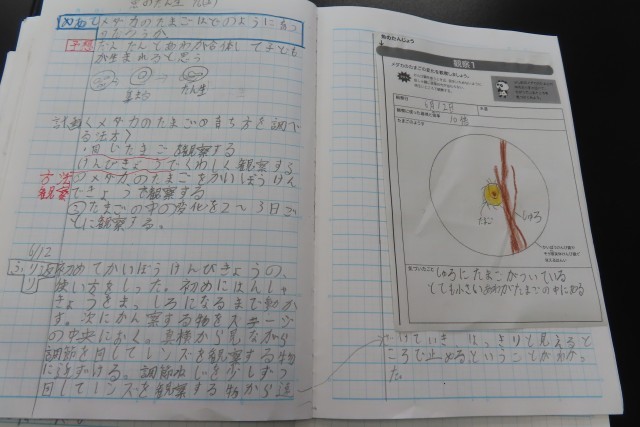 メダカのたまごはどのように育つのだろうか。
予想
だんだんとあわが合体して子どもが生まれると思う
たん生
計画くメダカのたまごの育ち方を調べる方法?
①同じたまごを観察する
けんびきょうでくわしく観察する
方法
観察
メダカのたまごをかいぼうけんびきょうで観察する
②たまごの中の変化を2~3日ごとに観察する。
6/12
ふり返り
初めてかいぼうけんびきょうの、
使い方をしった。初めにはんしゃ
きょうをまっしろになるまで動か
す。次にかん察する物をステージ
の中央におく。真横から見ながら
調節を回してレンズを観察する物
に近ずける。調節ねじを少しずつ
回してレンズを観察する物から遠
ざけていき、はっきりと見えると
ころで止めるということがわかっ
た
命のたんじょう
観察1
メダカのたまごの変化を観察しましょう。
6月12日
10倍
たまごのようす
たまご
しゅろ
気づいたこと
しゅろにたまごがついている
とても小さいあわがたまごの中にある